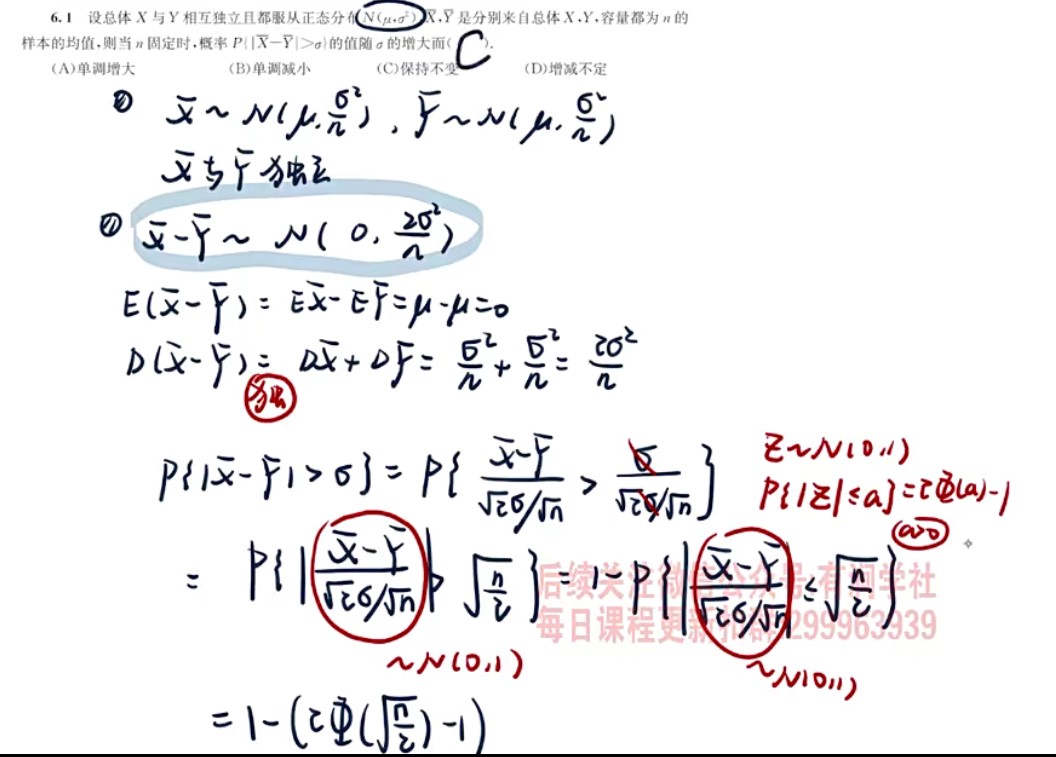 6.1 设总体 X 与 Y 相互独立且都服从正态分布 N(μ,σ²), X̄,Ȳ 是分别来自总体 X,Y,容量都为 n 的
样本的均值,则当 n 固定时,概率 P{|X̄−Ȳ|>σ}的值随 σ 的增大而( C ).
(A)单调增大 (B)单调减小 (C)保持不变 (D)增减不定
① X̄ ~ N(μ, σ²/n), Ȳ ~ N(μ, σ²/n)
X̄与Ȳ独立
② X̄-Ȳ ~ N(0, 2σ²/n)
E(X̄-Ȳ) = EX̄-EȲ=μ-μ=0
D(X̄-Ȳ) = DX̄+DȲ = σ²/n + σ²/n = 2σ²/n
独
P{|X̄-Ȳ|>σ} = P{ (X̄-Ȳ)/(√2σ/√n) > σ/(√2σ/√n) }
Z~N(0,1)
P{|Z|≤a}=2Φ(a)-1
a>0
= P{ |(X̄-Ȳ)/(√2σ/√n)| > √(n/2) } = 1-P{ |(X̄-Ȳ)/(√2σ/√n)| ≤ √(n/2) }
后续关注微信公众号:有润学社
每日课程更新扣群:299963939
~N(0,1) ~N(0,1)
= 1-(2Φ(√(n/2))-1)